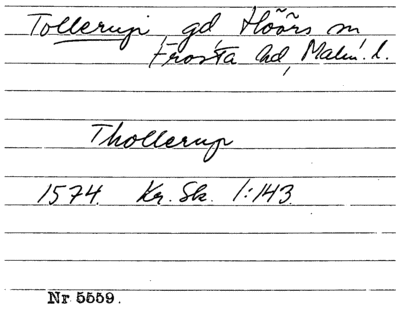 Tollerup, gd, Höörs sn
Frosta hd, Malm. l.
Thollerup
1574 Kr. Sk. 1:143
Nr 5559.